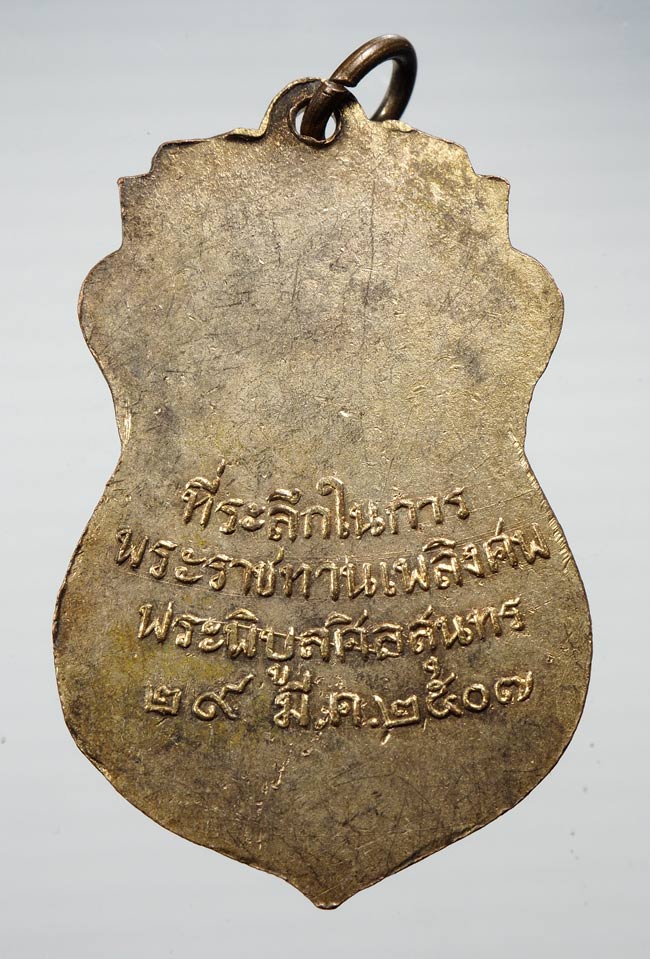 ที่ระลึกในการ
พระราชทานเพลิงศพ
พระพิบูลศิลสุนทร
๒๙ มี.ค.๒๕๐๗